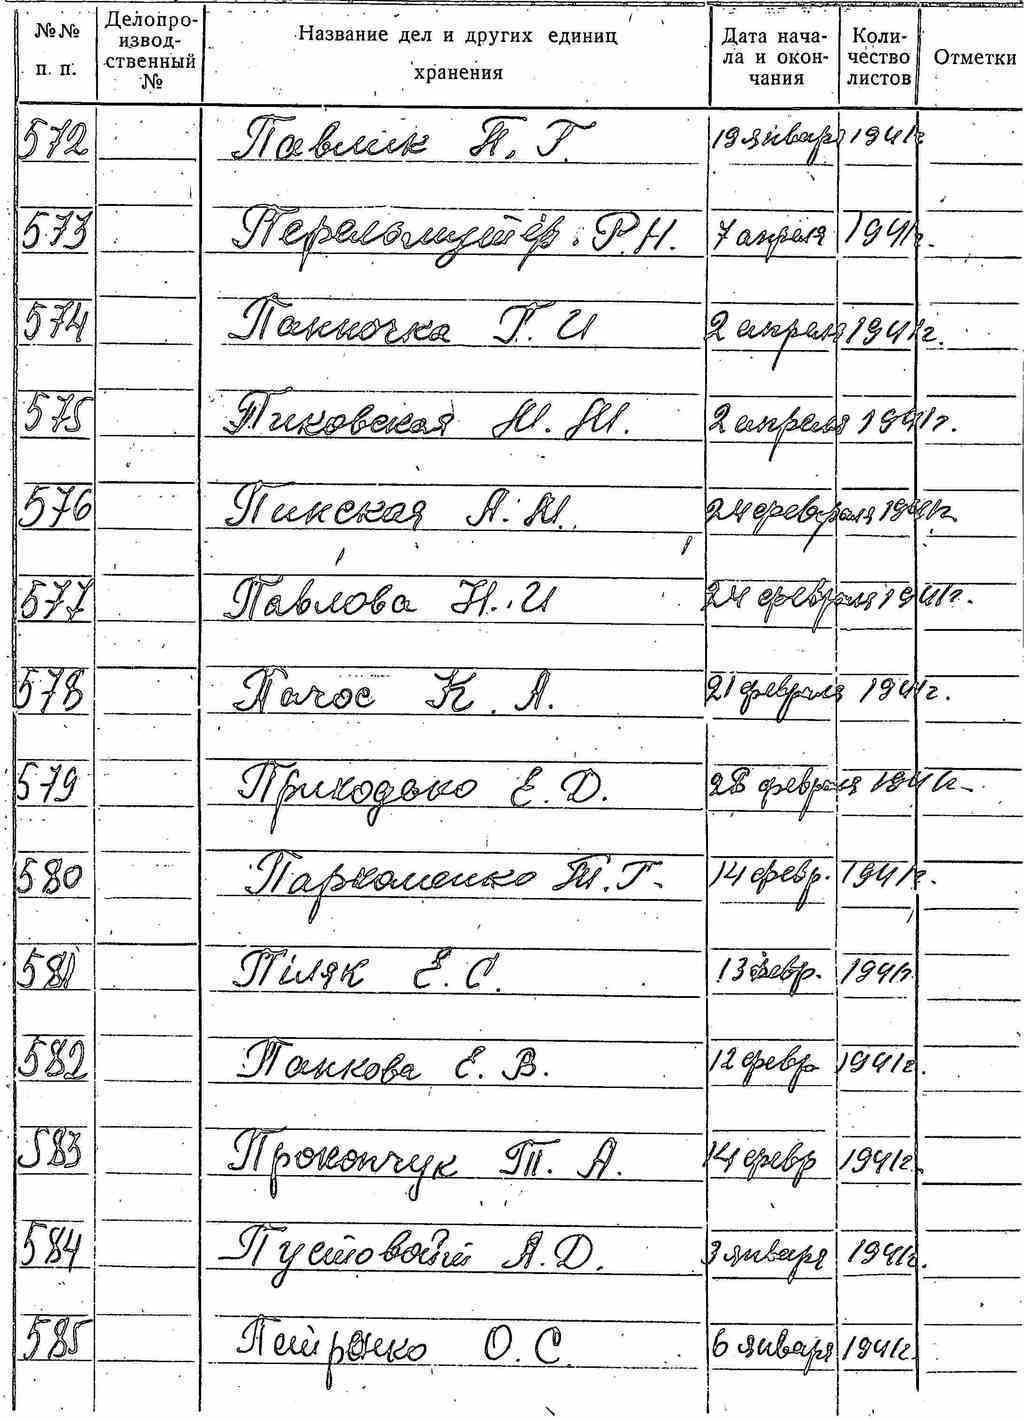 №№ п. п. Делопроизводственный № Название дел и других единиц хранения Дата начала и окончания Количество листов Отметки
572 Павлик П. Г. 19 января 1941г.
573 Перельмутер Р.Н. 7 апреля 1941г.
574 Панночка Г. И 2 апреля 1941г.
575 Пиковская М. М. 2 апреля 1941г.
576 Пинская А. М. 24 февраля 1941г.
577 Павлова Н. И 24 февраля 1941г.
578 К. А. 21 февраля 1941г.
579 Приходько Е. Д. 28 февраля 1941г.
580 Пархоменко Т. Г. 14 февр. 1941г.
581 Піляк Е. С. 13 февр. 1941г.
582 Панкова Е. В. 12 февр 1941г.
583 Прокопчук Т. А. 14 февр 1941г.
584 Пустовойт А. Д. 3 января 1941г.
585 Петренко О. С. 6 января 1941г.